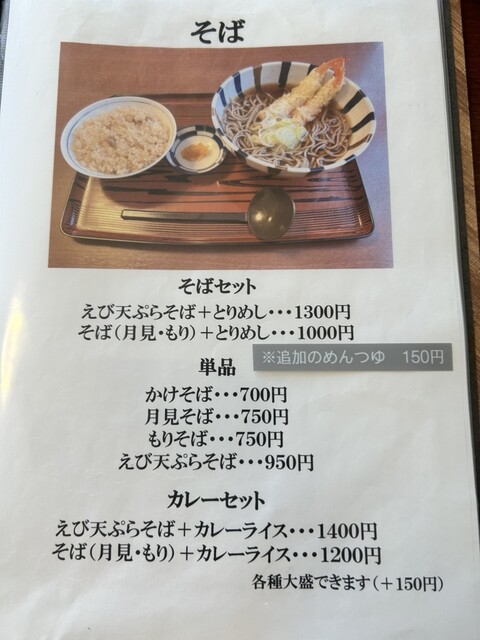 そば
そばセット
えび天ぷらそば＋とりめし･･･1300円
そば（月見・もり）＋とりめし･･･1000円
※追加のめんつゆ　150円
単品
かけそば･･･700円
月見そば･･･750円
もりそば･･･750円
えび天ぷらそば･･･950円
カレーセット
えび天ぷらそば＋カレーライス･･･1400円
そば（月見・もり）＋カレーライス･･･1200円
各種大盛できます（＋150円）